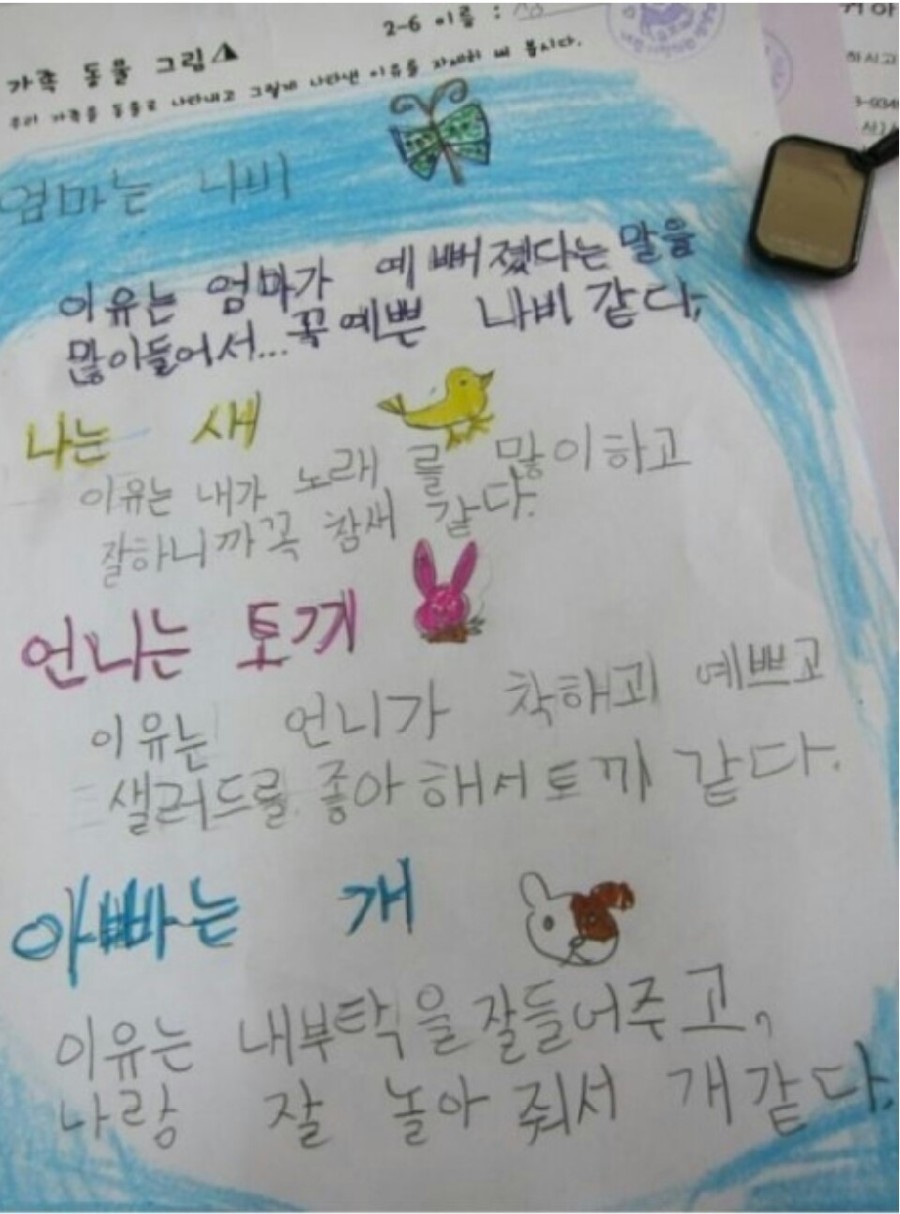 2-6 이름 :
가족 동물 그림
우리 가족을 동물로 나타내고 그렇게 나타낸 이유를 자세히 써 봅시다.
엄마는 나비
이유는 엄마가 예뻐졌다는 말을
많이들어서...꼭예쁜 나비 같다,
나는 새
이유는 내가 노래 를 많이하고
잘하니까꼭 참새 같다.
언니는 토끼
이유는 언니가 착하고 예쁘고
샐러드를 좋아해서토끼 같다.
아빠는 개
이유는 내부탁을 잘들어주고,
나랑 잘 놀아 줘서 개같다.